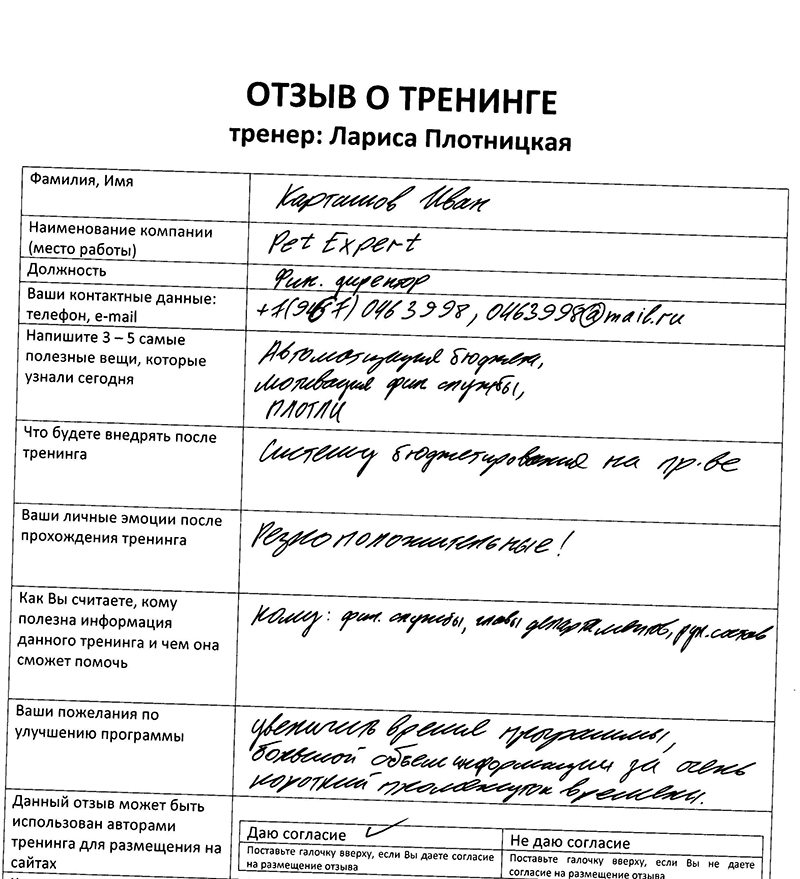 ОТЗЫВ О ТРЕНИНГЕ
тренер: Лариса Плотницкая
Фамилия, Имя
Карташов Иван
Наименование компании
(место работы)
Pet Expert
Должность
Фин. директор
Ваши контактные данные:
телефон, e-mail
+7(967) 0463998, 0463998@mail.ru
Напишите 3 – 5 самые
полезные вещи, которые
узнали сегодня
Автоматизация бюджета,
мотивация фин службы,
Что будете внедрять после
тренинга
Систему бюджетирования на пр-ве
Ваши личные эмоции после
прохождения тренинга
Резкоположительные!
Как Вы считаете, кому
полезна информация
данного тренинга и чем она
сможет помочь
Кому: фин. службы, главы департаментов, рук. состав
Ваши пожелания по
улучшению программы
увеличить время программы,
большой объем информации за очень
короткий промежуток времени.
Данный отзыв может быть
использован авторами
тренинга для размещения на
сайтах
Даю согласие ✓
Поставьте галочку вверху, если Вы даете согласие
на размещение отзыва
Не даю согласие
Поставьте галочку вверху, если Вы не даете
согласие на размещение отзыва